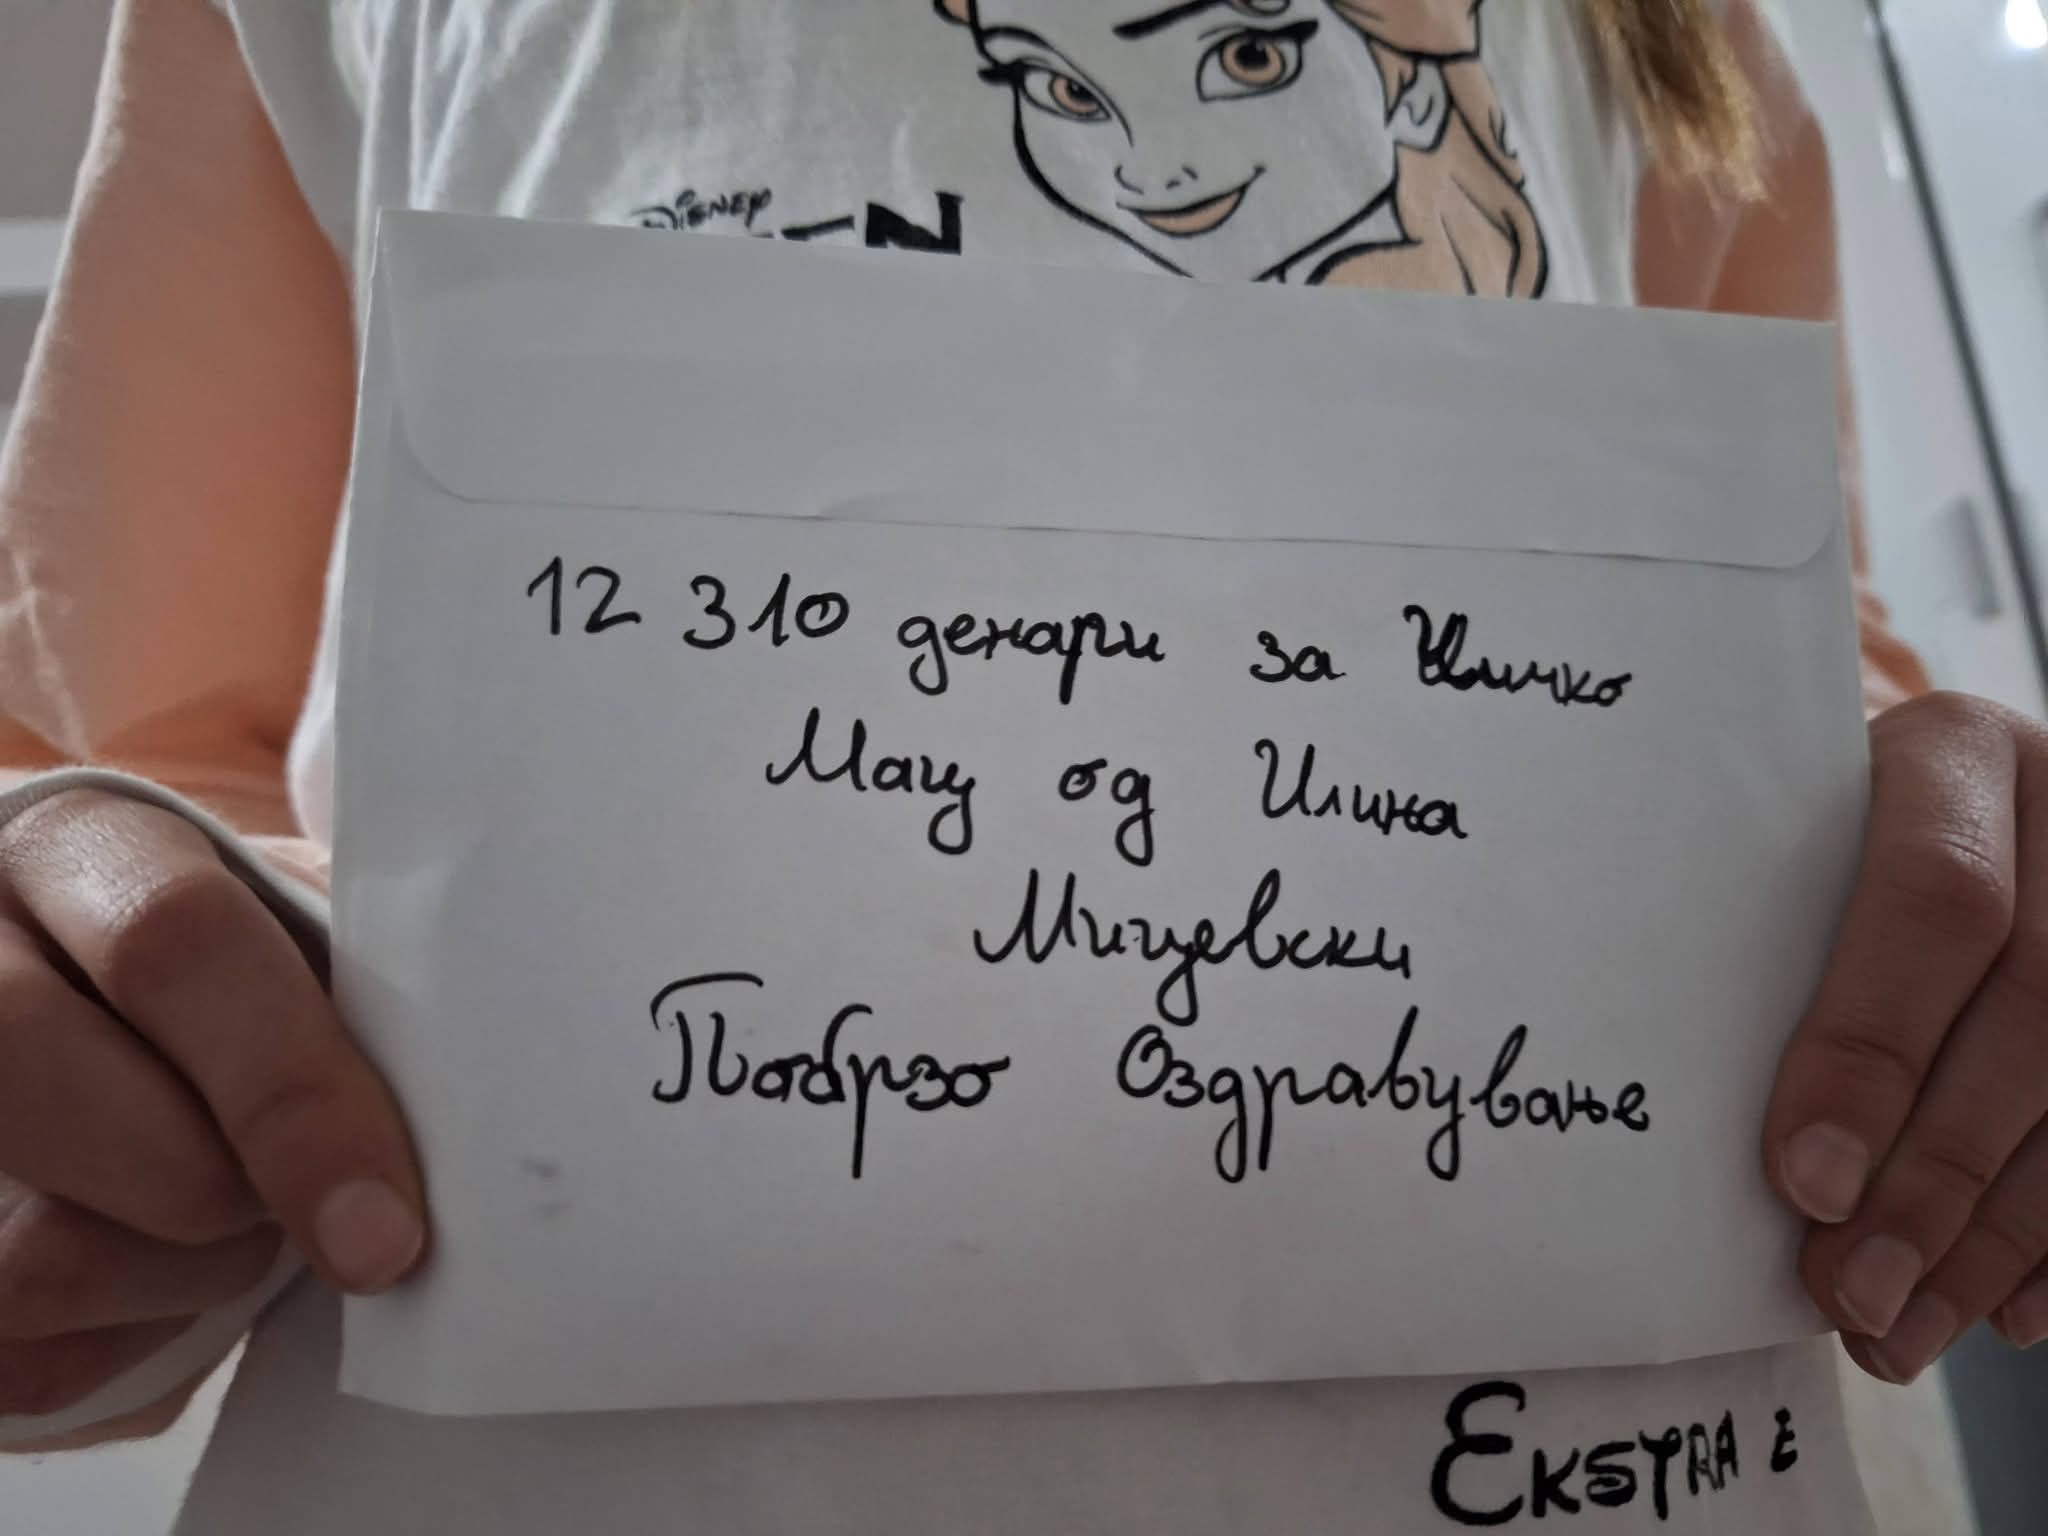 DISNEY
12 310 денари за
Мацу од Илина
Мицевски
Побрзо Оздравување
EKSTRA E